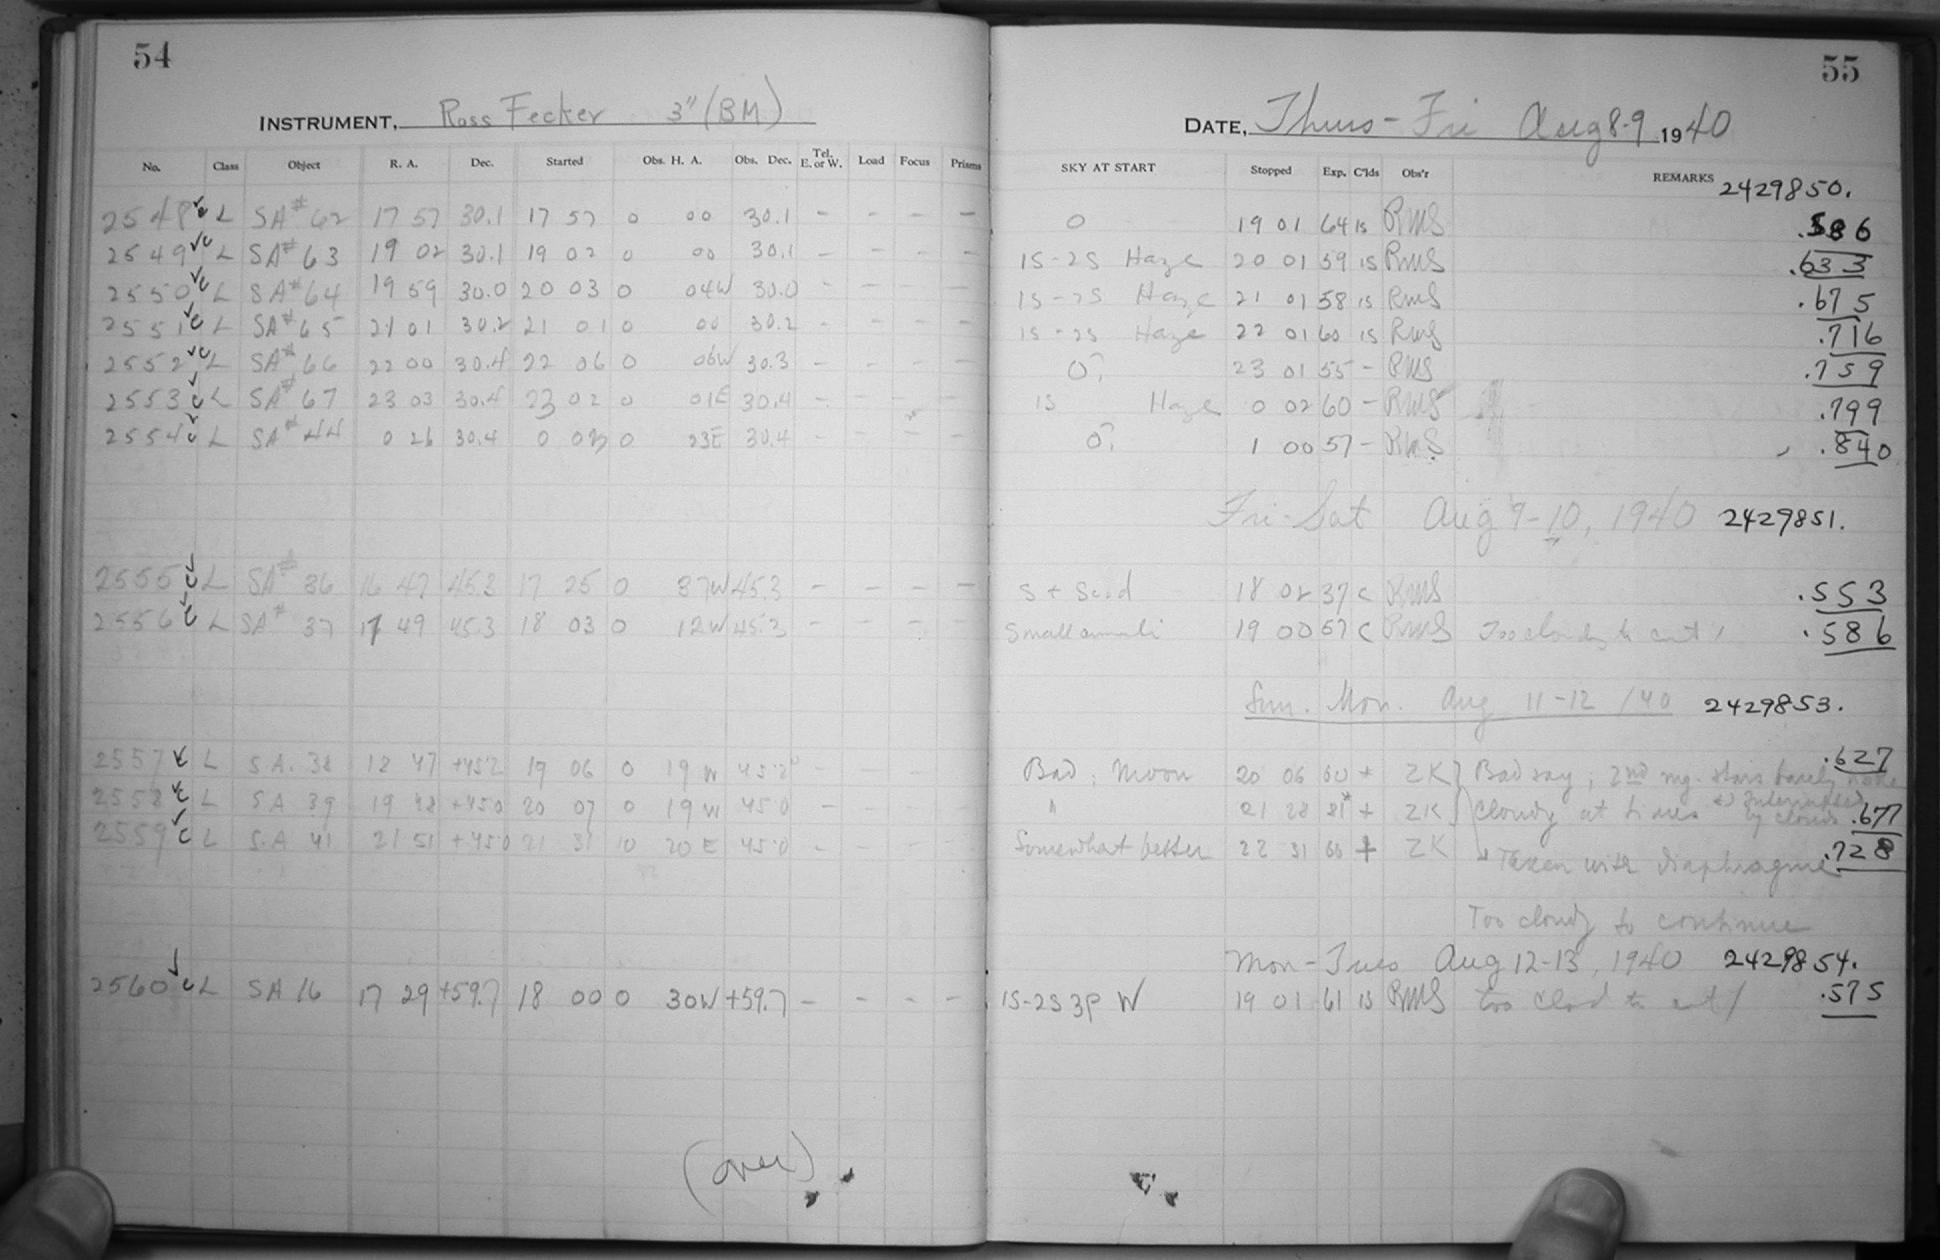 54
INSTRUMENT, Ross Fecker 3" (BM)
No. Class Object R. A. Dec. Started Obs. H. A. Obs. Dec. Tel. E. or W. Load Focus Prisms
2548 L SA# 62 17 57 30.1 17 57 0 00 30.1 - - - -
2549 L SA# 63 19 02 30.1 19 02 0 00 30.1 - - - -
2550 L SA# 64 19 59 30.0 20 03 0 04W 30.0 - - - -
2551 L SA# 65 21 01 30.2 21 01 0 00 30.2 - - - -
2552 L SA# 66 22 00 30.4 22 06 0 06W 30.3 - - - -
2553 L SA# 67 23 03 30.4 23 02 0 01E 30.4 - - - -
2554 L SA# 44 0 26 30.4 0 03 0 23E 30.4 - - - -
2555 L SA# 36 16 47 45.3 17 25 0 37W 45.3 - - - -
2556 L SA# 37 17 49 45.3 18 03 0 12W 45.3 - - - -
2557 L S.A. 38 18 47 +45.2 19 06 0 19 W 45.2 - - -
2558 L SA 39 19 48 +45.0 20 07 0 19 W 45.0 - - - -
2559 L S.A 41 21 51 +45.0 21 31 0 20 E 45.0 - - - -
2560 L SA 16 17 29 +59.7 18 00 0 30W +59.7 - - - -
(over)
55
DATE, Thurs - Fri Aug 8-9 1940
SKY AT START Stopped Exp. C'lds Obs'r REMARKS 2429850.
0 19 01 64 1s RMS .586
1S-2S Haze 20 01 59 1s RMS .633
1S-2S Haze 21 01 58 1s RMS .675
1S-2S Haze 22 01 60 1s RMS .716
0? 23 01 55 - RMS .759
1S Haze 0 02 60 - RMS .799
0? 1 00 57 - RMS .840
Fri-Sat Aug 9-10, 1940 2429851.
S + Scud 18 02 37 c RMS .553
Small cumuli 19 00 57 c RMS Too cloudy to cont / .586
Sun. Mon. Aug 11-12 /40 2429853.
Bad; Moon 20 06 60 + ZK Bad say; 2nd mg. stars barely .627
" 21 28 81* + ZK cloudy at times *) Interrupted by clouds .677
Somewhat better 22 31 60 + ZK Taken with diaphragme .728
Too cloudy to continue
Mon-Tues Aug 12-13, 1940 2429854.
1S-2S 3P W 19 01 61 1s RMS too cloud to cont / .575